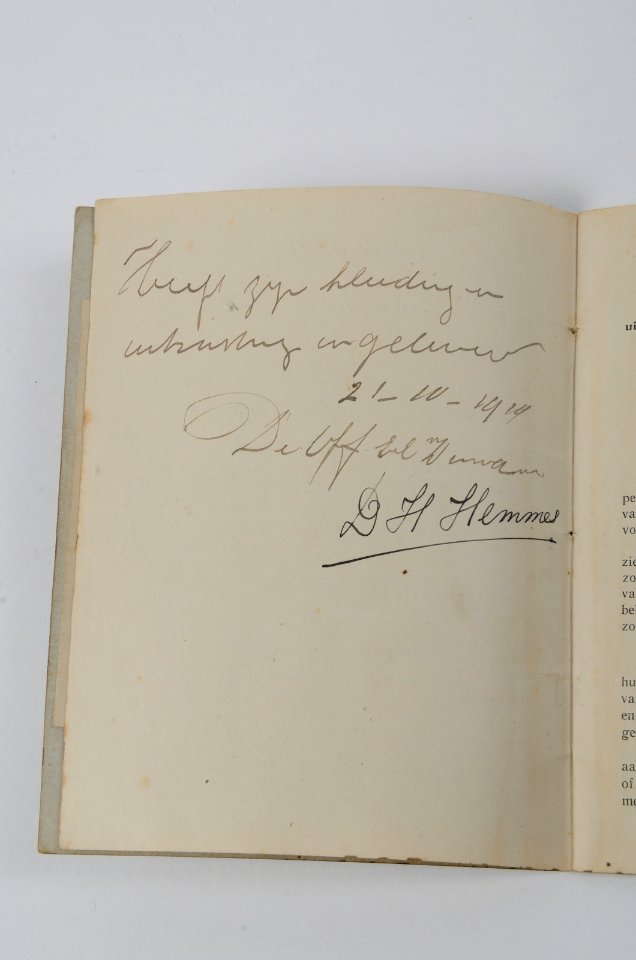 Heeft zijn kleeding en
uitrusting ingeleverd
21-10-1919
De Off
D H Hemmes
ui
pe
va
vo
zie
zo
va
bel
zo
hu
va
en
ge
aa
of
me